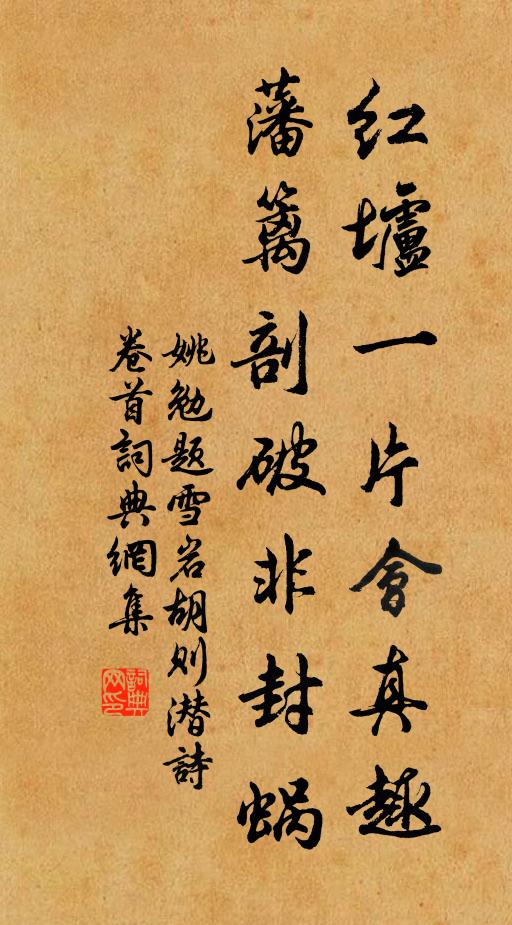 红壚一片會真趣
藩籬剖破非封蜗
姚勉题雪岩胡则潜詩
卷首詞典網集
詞典网印